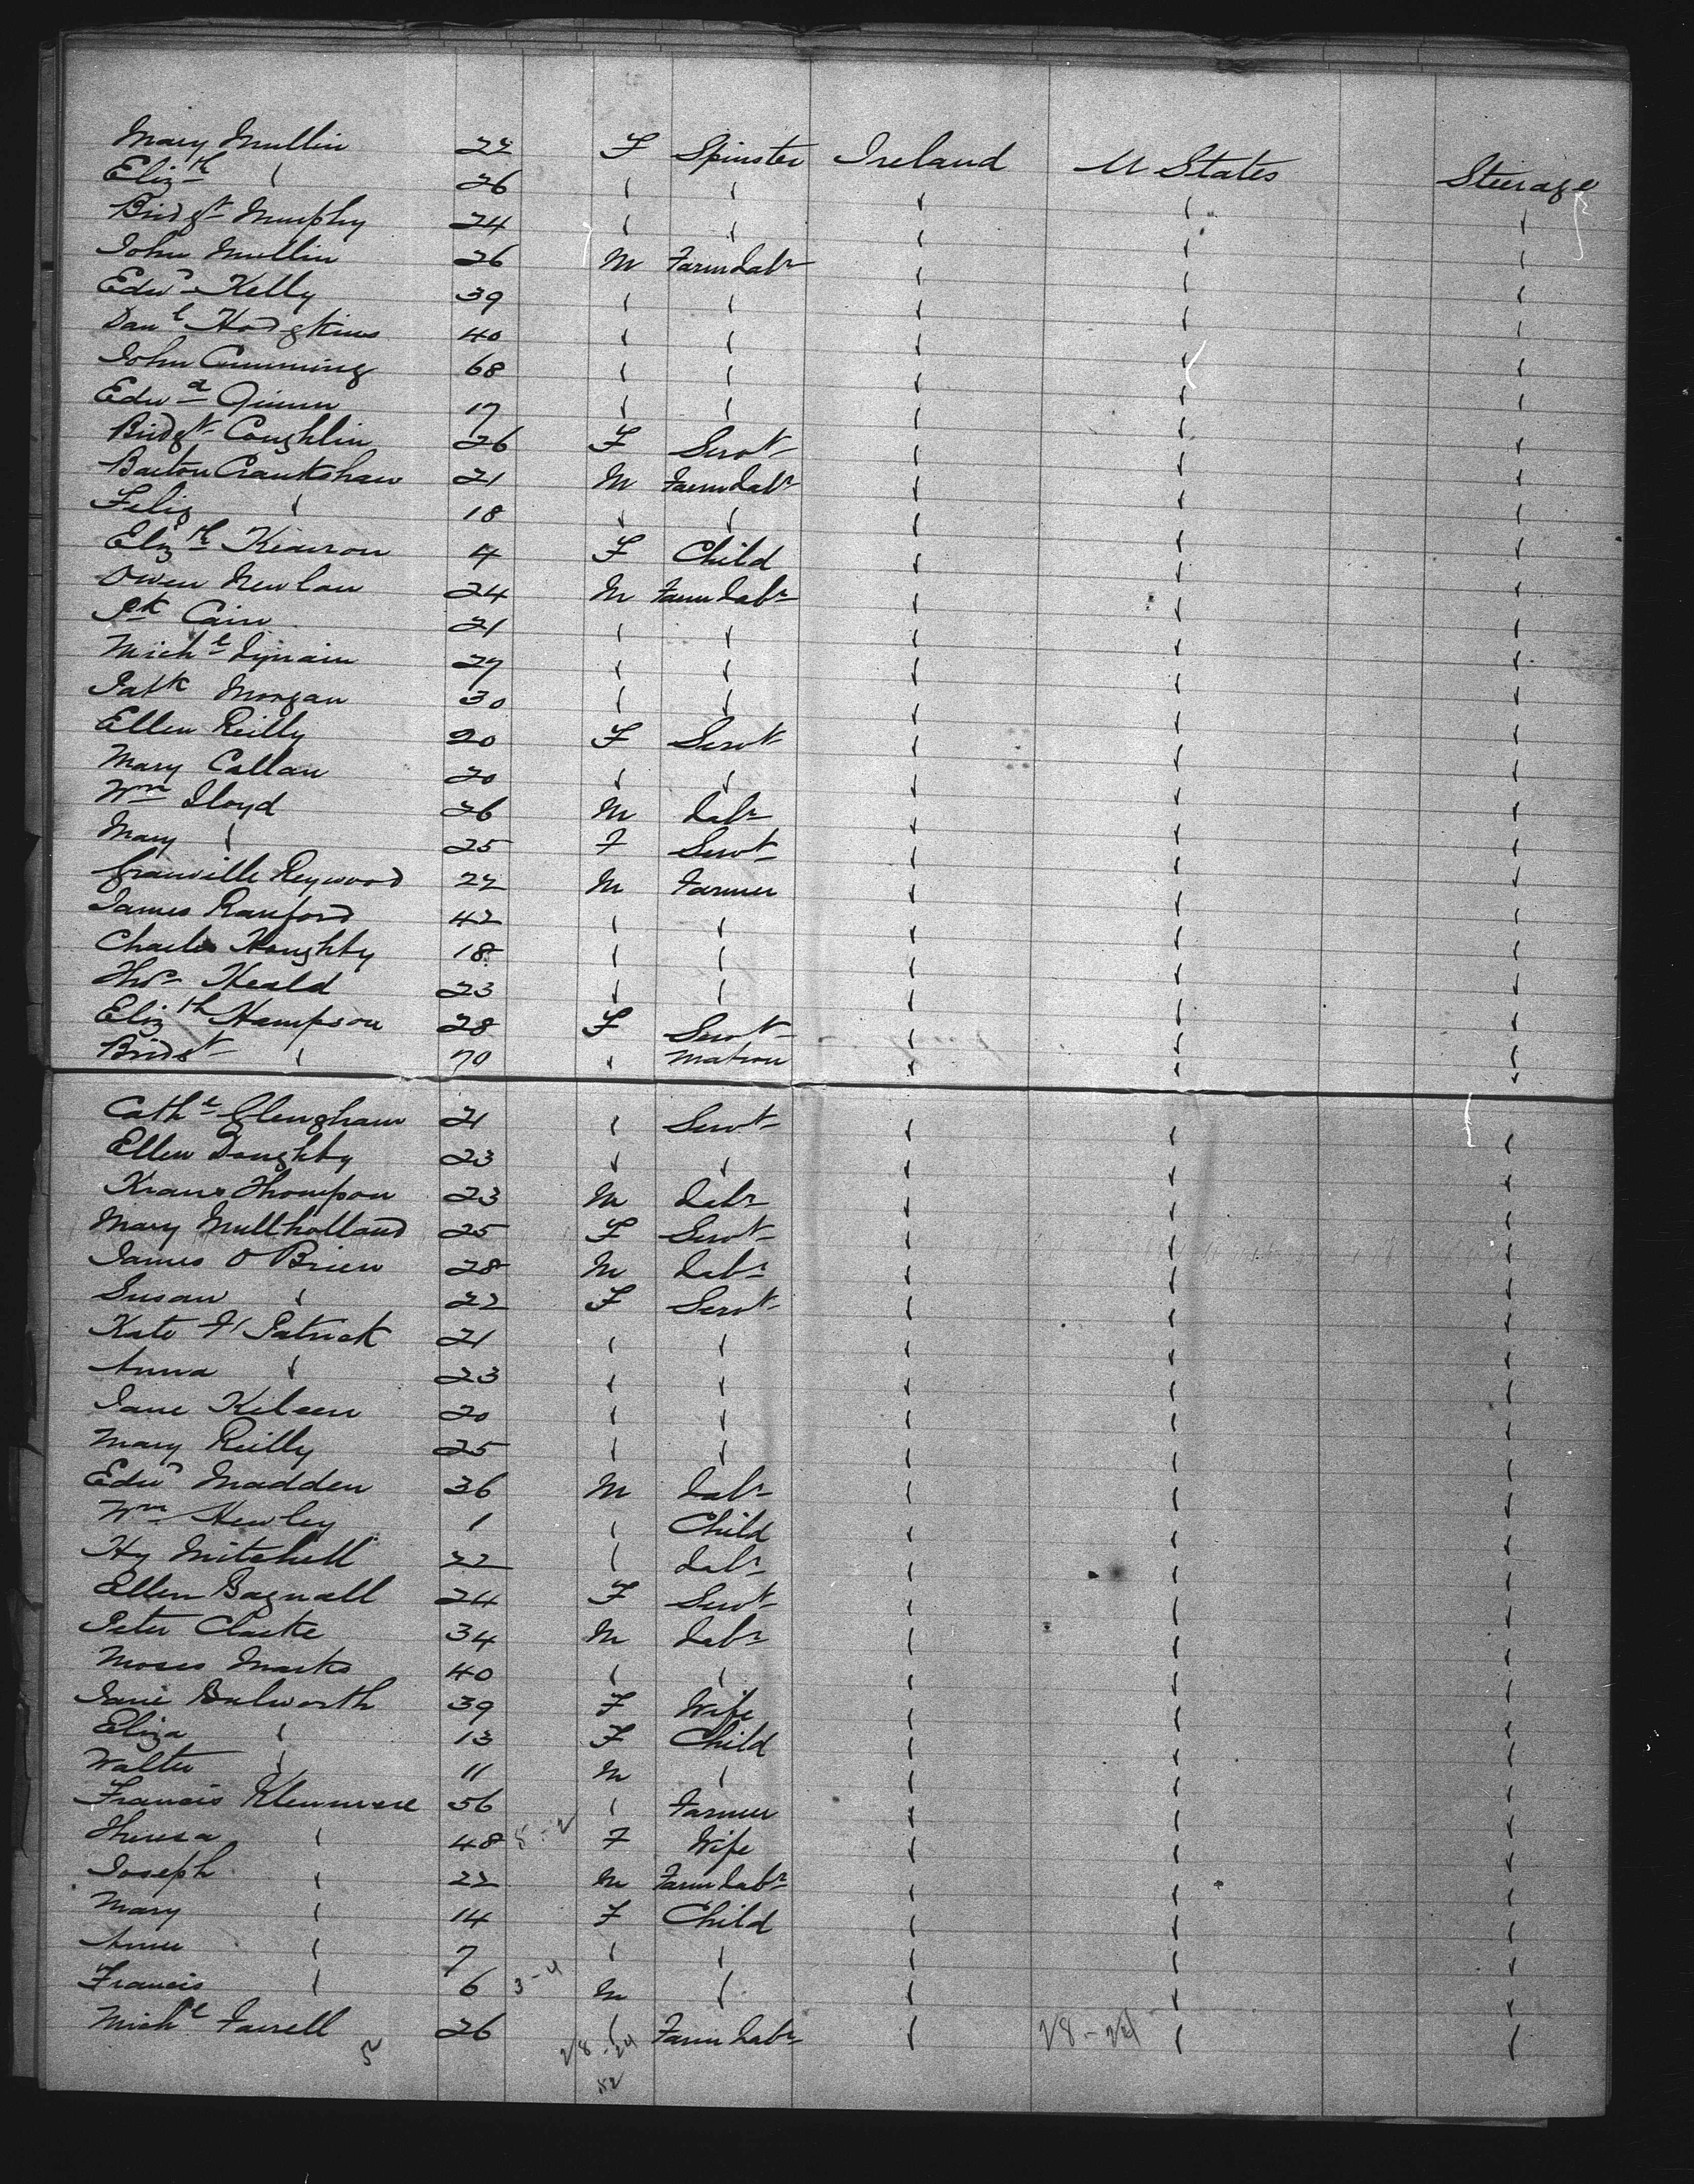 Mary Mullin 22 F Spinster Ireland U States Steerage
Elizth " 26 " " " " "
Bridgt Murphy 24 " " " " "
John Mullin 26 M Farm Labr " " "
Edwd Kelly 39 " " " " "
Danl Hodgkins 40 " " " " "
John Cumming 68 " " " " "
Edwd Quinn 17 " " " " "
Bridgt Coughlin 26 F Servt " " "
Barton Crankshaw 21 M Farm Labr " " "
Feliz " 18 " " " " "
Elizth Kearon 4 F Child " " "
Owen Newlan 24 M Farm Labr " " "
Pk Cain 21 " " " " "
Michl 27 " " " " "
Patk Morgan 30 " " " " "
Ellen Reilly 20 F Servt " " "
Mary Callan 20 " " " " "
Wm Lloyd 26 M Labr " " "
Mary " 25 F Servt " " "
Granville Reywood 22 M Farmer " " "
James Ranford 42 " " " " "
Charles Haughty 18 " " " " "
Thos Heald 23 " " " " "
Elizth Hampson 28 F Servt " " "
Bridgt " 70 " Matron " " "
Cathe Clengham 21 " Servt " " "
Ellen Doughty 23 " " " " "
Thompson 23 M Labr " " "
Mary Mullholland 25 F Servt " " "
James O Brien 28 M Labr " " "
Susan " 22 F Servt " " "
Kate F' Patrick 21 " " " " "
Anna " 23 " " " " "
Jane Kileen 20 " " " " "
Mary Reilly 25 " " " " "
Edwd Madden 36 M Labr " " "
Wm Hewley 1 " Child " " "
Hy Mitchell 22 " Labr " " "
Ellen Bagnall 24 F Servt " " "
Peter Clarke 34 M Labr " " "
Moses Marks 40 " " " " "
Jane Bulworth 39 F Wife " " "
Eliza " 13 F Child " " "
Walter " 11 M " " " "
Francis Klenmere 56 " Farmer " " "
Theresa " 48 F Wife " " "
Joseph " 22 M Farm Labr " " "
Mary " 14 F Child " " "
Anne " 7 " " " " "
Francis " 6 3-4 M " " " "
Michl Farrell 26 " Farm Labr " 28-24 " "
5 28-24
52